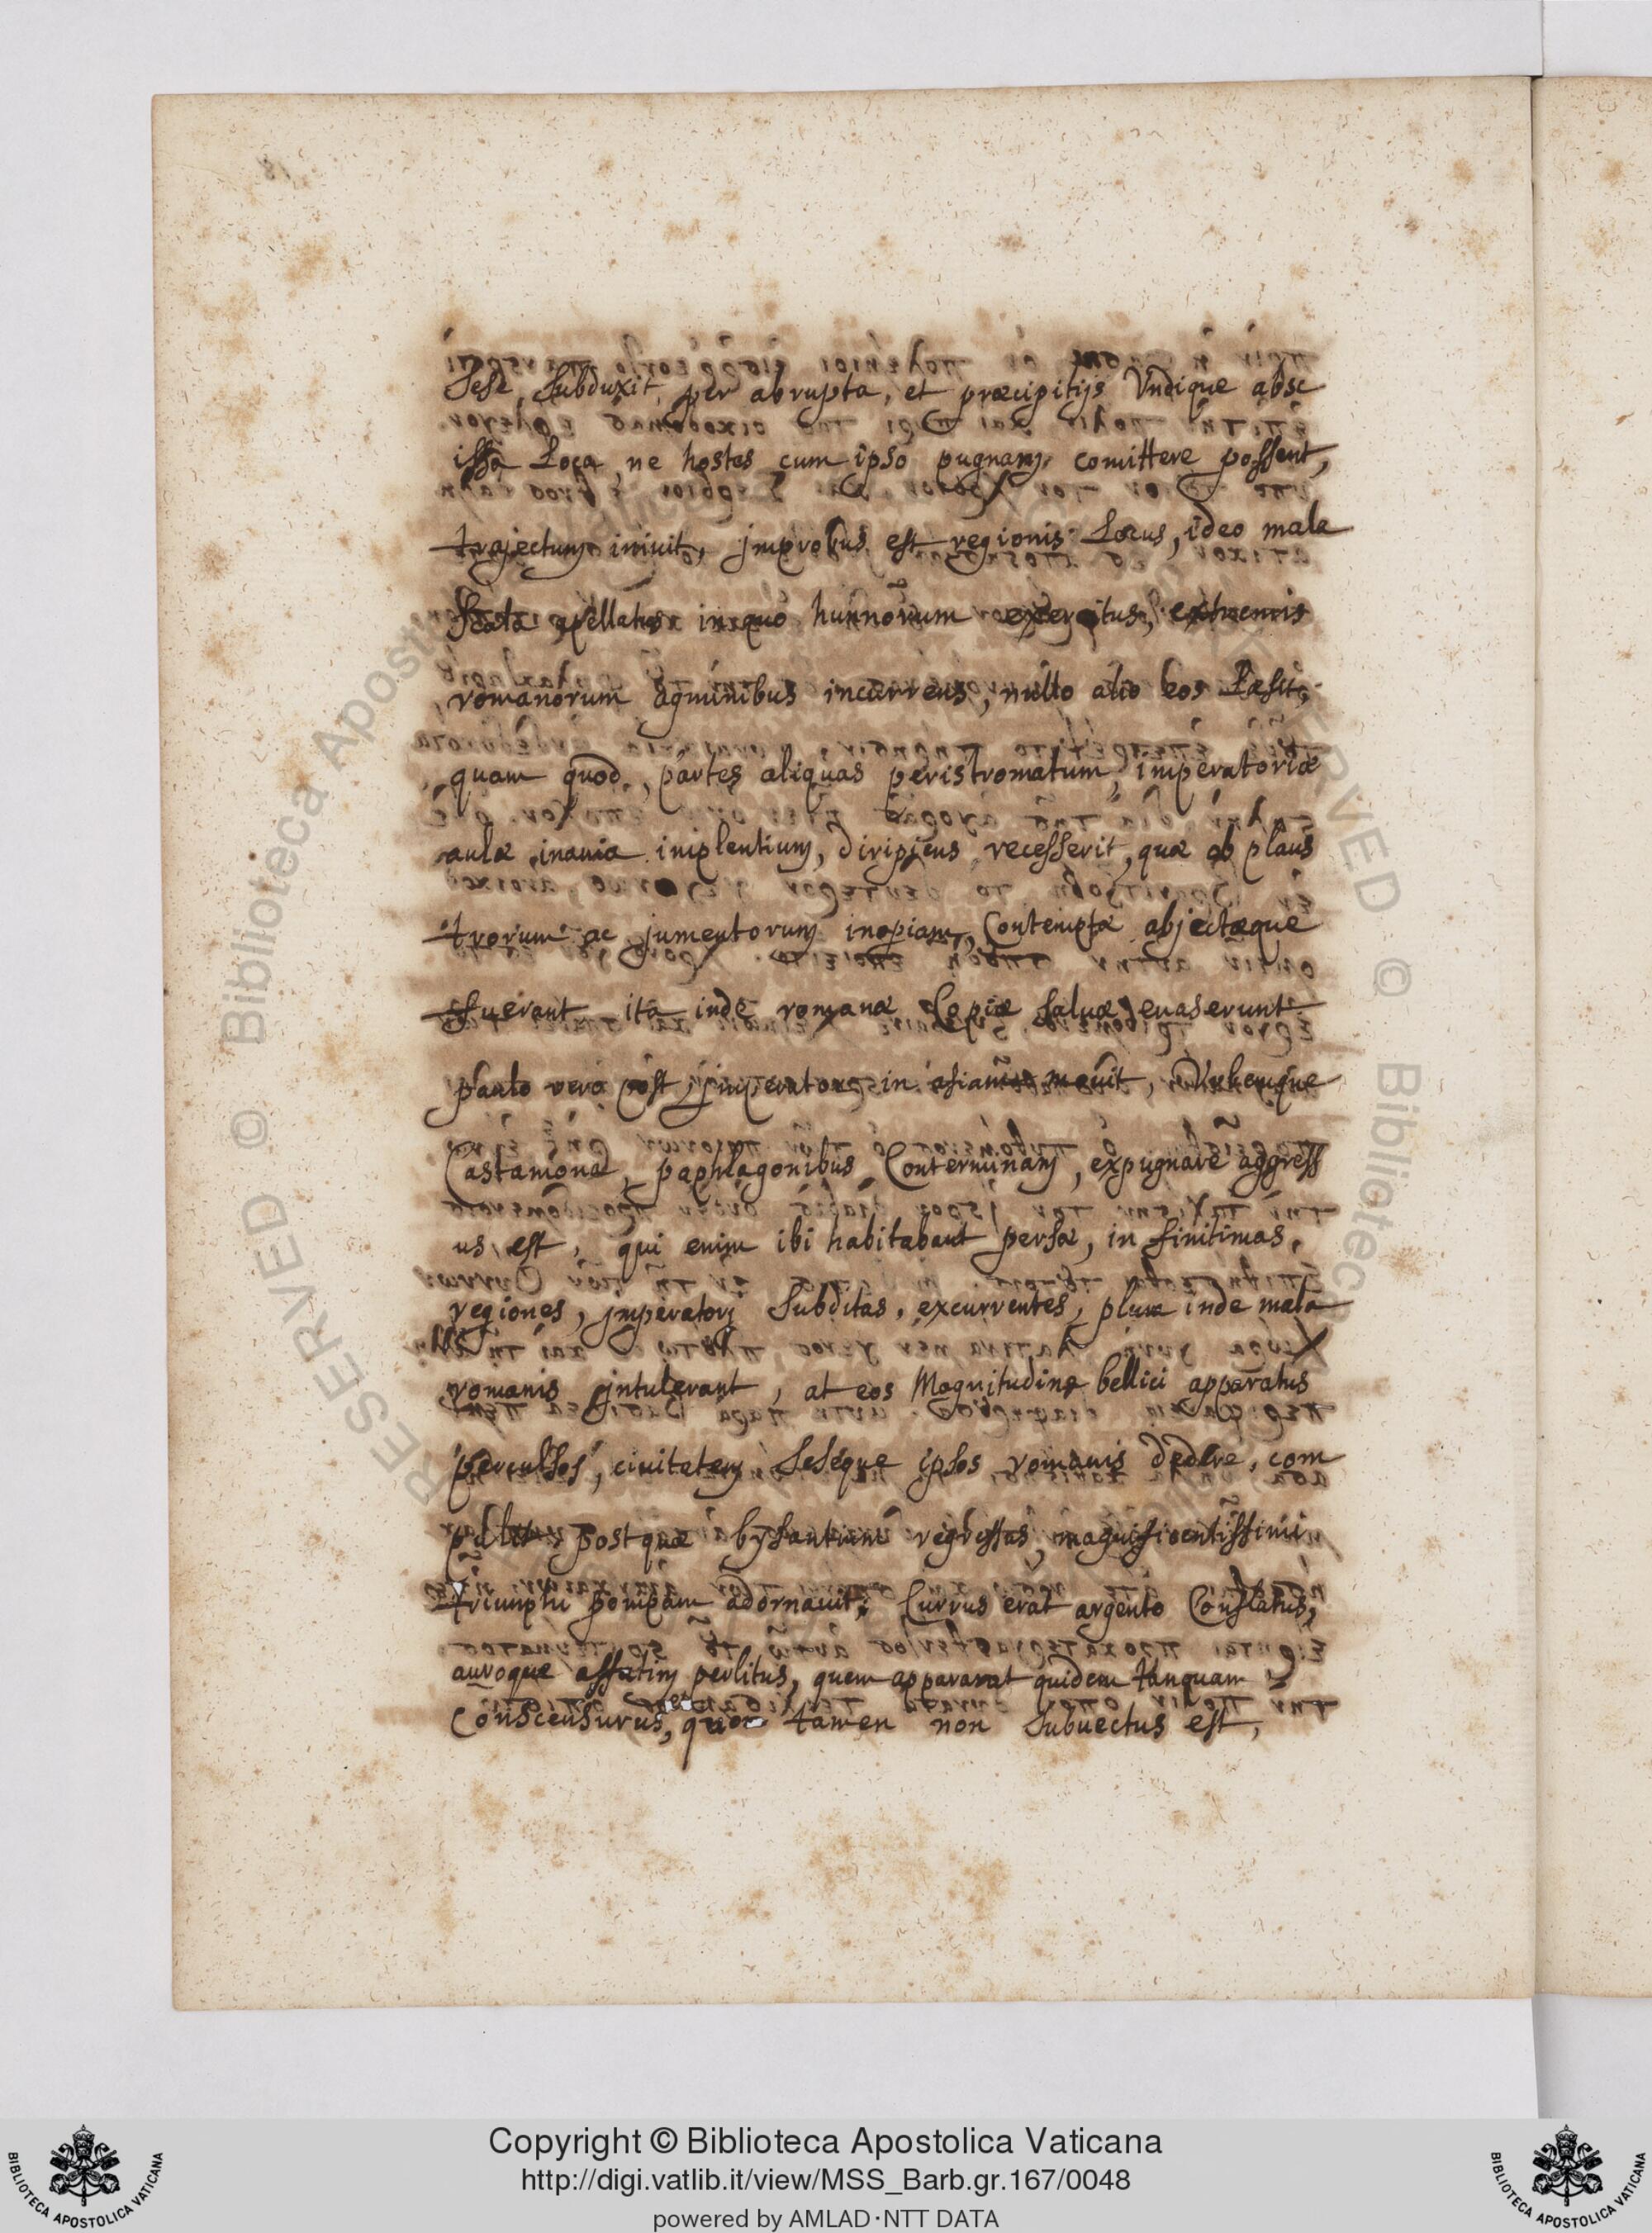 sese, subduxit, per abrupta, et præcipitijs Vndique absc
issa Loca, ne hostes cum ipso pugnam, comittere possent,
trajectum iniuit, jmprobus est regionis Locus, ideo mala
in quo hunnorum exercitus, extremis
romanorum agminibus incurrens, nullo alio eos Læsit,
quam quod, partes aliquas peristromatum, imperatoriæ
aulæ inania implentium, diripiens recesserit, quæ ob plaus
trorum ac jumentorum inopiam, Contemptæ abjectæque
fuerant ita inde romanæ Copiæ saluæ euaserunt
paulo vero post, jmperator, in asiam mouit, Vrbemque
Castamona, paphlagonibus Conterminam, expugnare aggress
us est, qui enim ibi habitabant persæ, in finitimas,
regiones, jmperatorj subditas, excurrentes, plura inde mala
romanis jntulerant, at eos Magnitudine bellici apparatus
perculsos, ciuitatem, seseque ipsos, romanis dedere, com
post quæ bysantium regressus, magnificentissimi
triumphi pompam adornauit; Currus erat argento Conflatus,
auroque affatim perlitus, quem appararat quidem tanquam
Conscensurus, tamen non subuectus est,
Copyright © Biblioteca Apostolica Vaticana
http://digi.vatlib.it/view/MSS_Barb.gr.167/0048
powered by AMLAD·NTT DATA
BIBLIOTECA APOSTOLICA VATICANA
BIBLIOTECA APOSTOLICA VATICANA